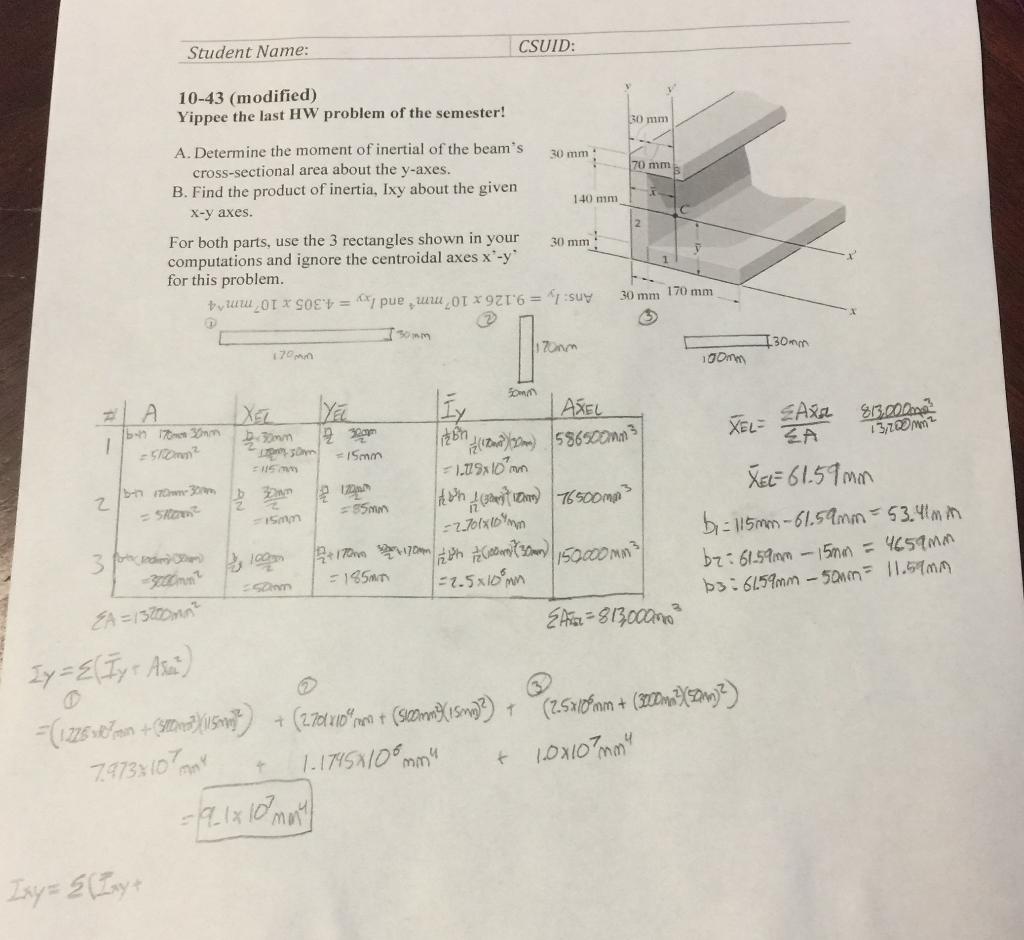 Student Name: CSUID:
10-43 (modified)
Yippee the last HW problem of the semester!
A. Determine the moment of inertial of the beam's
cross-sectional area about the y-axes.
B. Find the product of inertia, Ixy about the given
x-y axes.
For both parts, use the 3 rectangles shown in your
computations and ignore the centroidal axes x'-y'
for this problem.
Ans: Iy = 9.126 x 10^7 mm^4 and Ixy = 4.305 x 10^7 mm^4
y y'
30 mm
30 mm
70 mm 3
x̄
140 mm
C
2
30 mm
ȳ
1
x'
30 mm 170 mm
x
① 30mm
170mm
② 170mm
30mm
③ 30mm
100mm
# A X̄EL ȲEL Īy AX̄EL
1 b·h 170mm·30mm b/2+30mm h/2 30mm/2 1/12 b³h 1/12(170mm)³(30mm) 586500mm³
= 5100mm² =115mm =15mm =1.228x10⁷mm
2 b·h 170mm·30mm b/2 30mm/2 h/2 170mm/2 1/12 b³h 1/12(30mm)³(170mm) 76500mm³
= 5100mm² =15mm =85mm =2.701x10⁴mm
3 (100mm)(30mm) b/2 100mm/2 h/2+170mm 30mm/2+170mm 1/12 b³h 1/12(100mm)³(30mm) 150000mm³
=3000mm² =50mm =185mm =2.5x10⁶mm
ΣA=13200mm² ΣAX̄EL=813,000mm³
X̄EL= ΣAX̄EL/ΣA 813,000mm³/13,200mm²
X̄EL=61.59mm
b1=115mm-61.59mm=53.41mm
b2=61.59mm-15mm=46.59mm
b3=61.59mm-50mm=11.59mm
Iy=Σ(Īy+AX̄EL²)
① ② ③
=(1.228x10⁷mm+(5100mm²)(115mm)²) + (2.701x10⁴mm+(5100mm²)(15mm)²) + (2.5x10⁶mm+(3000mm²)(50mm)²)
7.973x10⁷mm⁴ + 1.1745x10⁶mm⁴ + 1.0x10⁷mm⁴
=9.1x10⁷mm⁴
Ixy=Σ(Īxy+